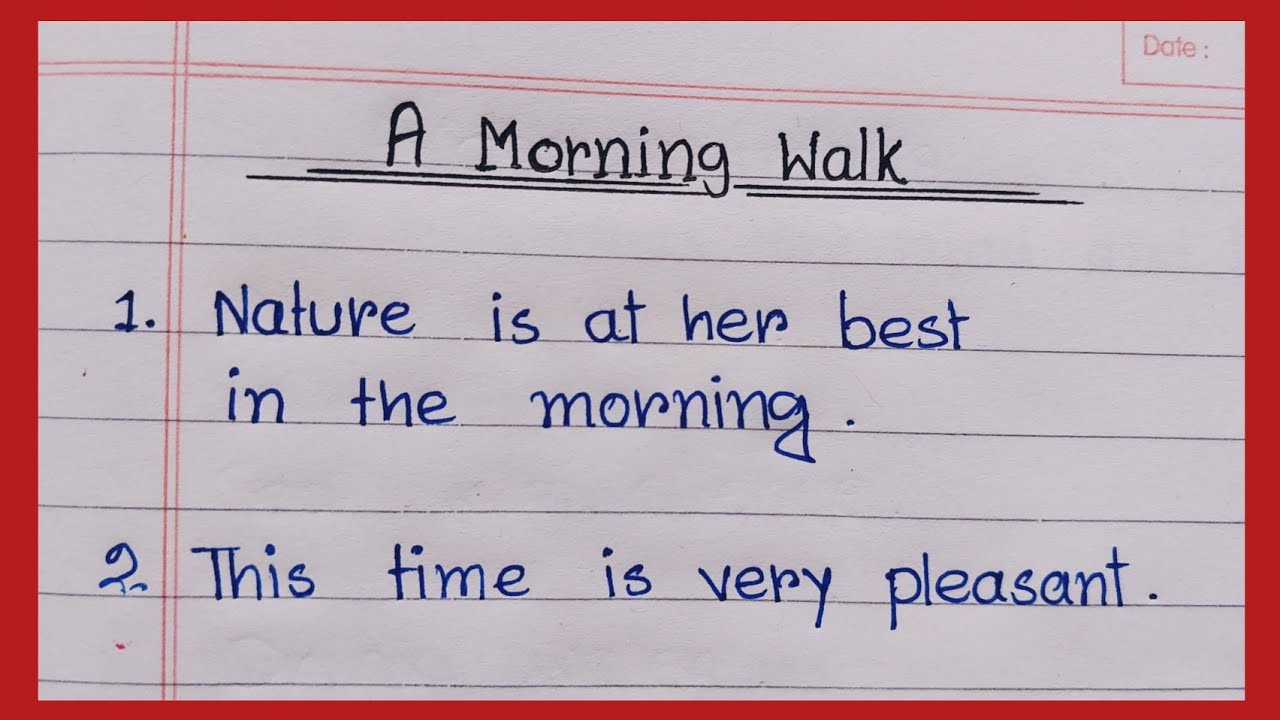 Date :
A Morning Walk
1. Nature is at her best
in the morning.
2. This time is very pleasant.